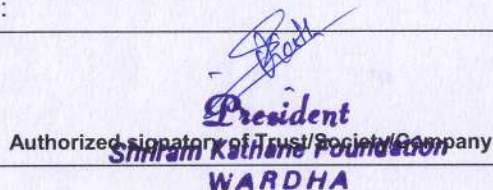 :
President
Authorized signatory of Trust/Society/Company
Shriram Kathane Foundation
WARDHA